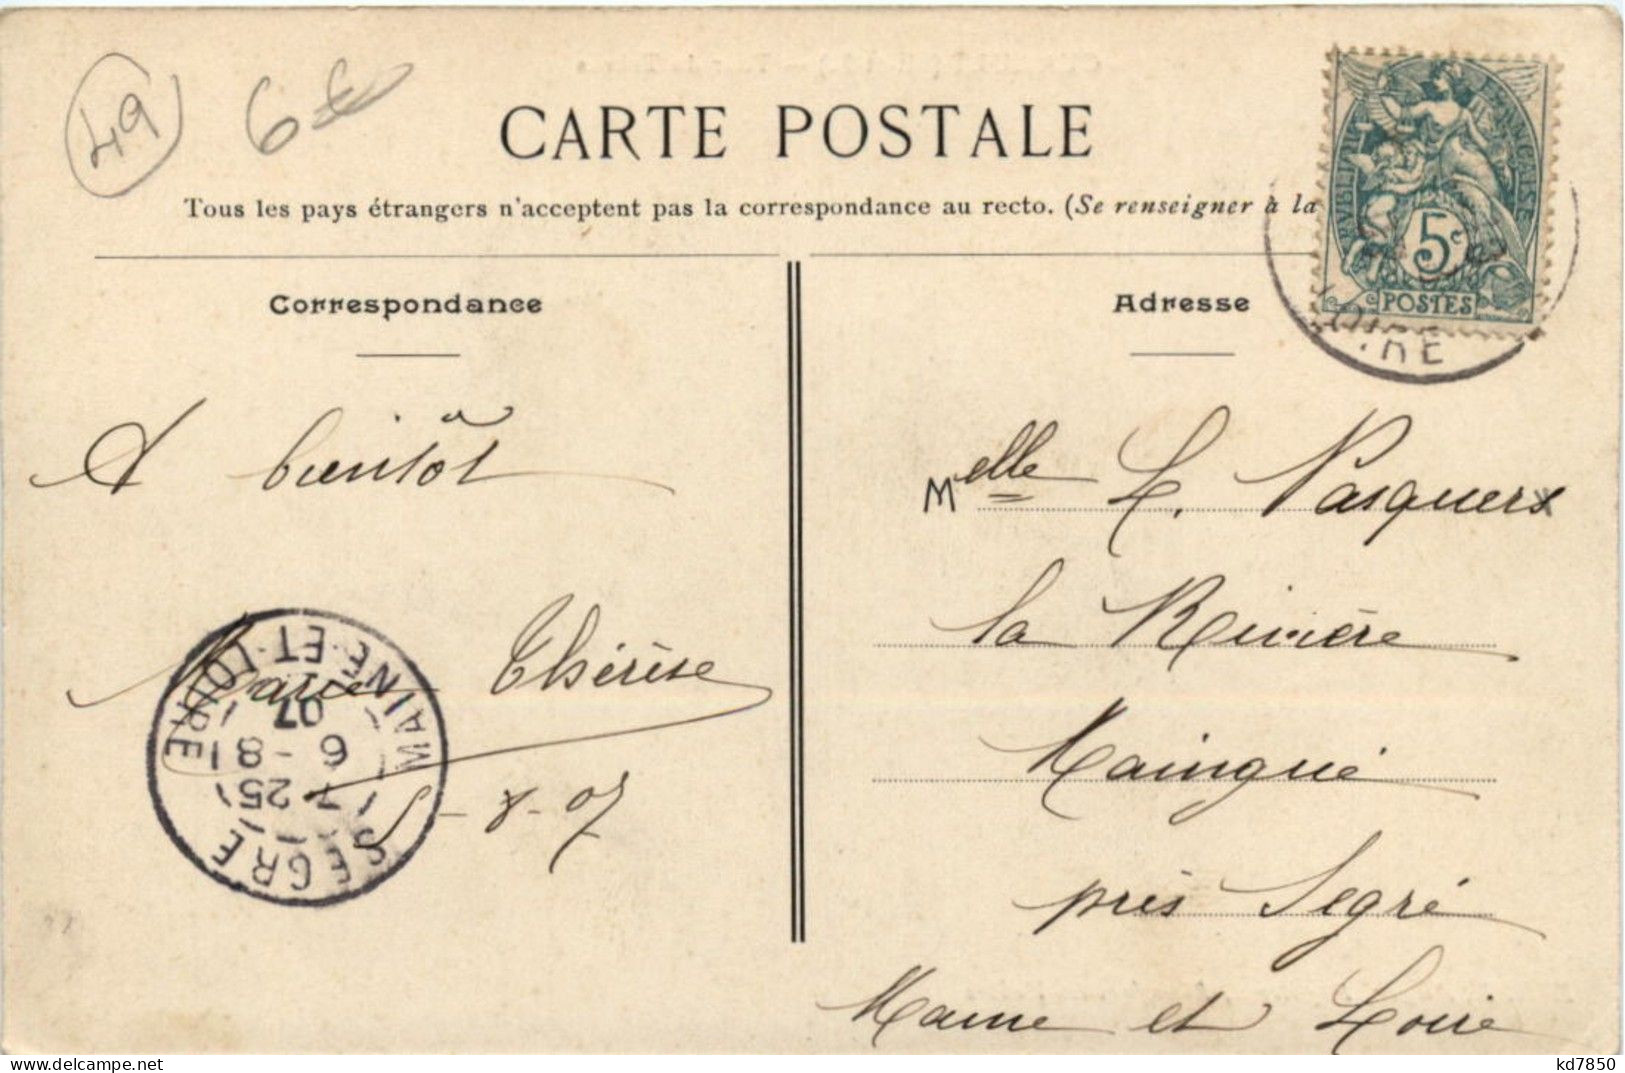 49
6€
CARTE POSTALE
Tous les pays étrangers n'acceptent pas la correspondance au recto. (Se renseigner à la
REPUBLIQUE FRANCAISE
5c
POSTES
Correspondance
A bientôt
Marie Thérèse
5-8-07
SEGRE
7 25
6 -8
07
MAINE-ET-LOIRE
Adresse
Melle L. Pasquer
la Rivière
Maingué
près Segré
Maine et Loire
kd7850